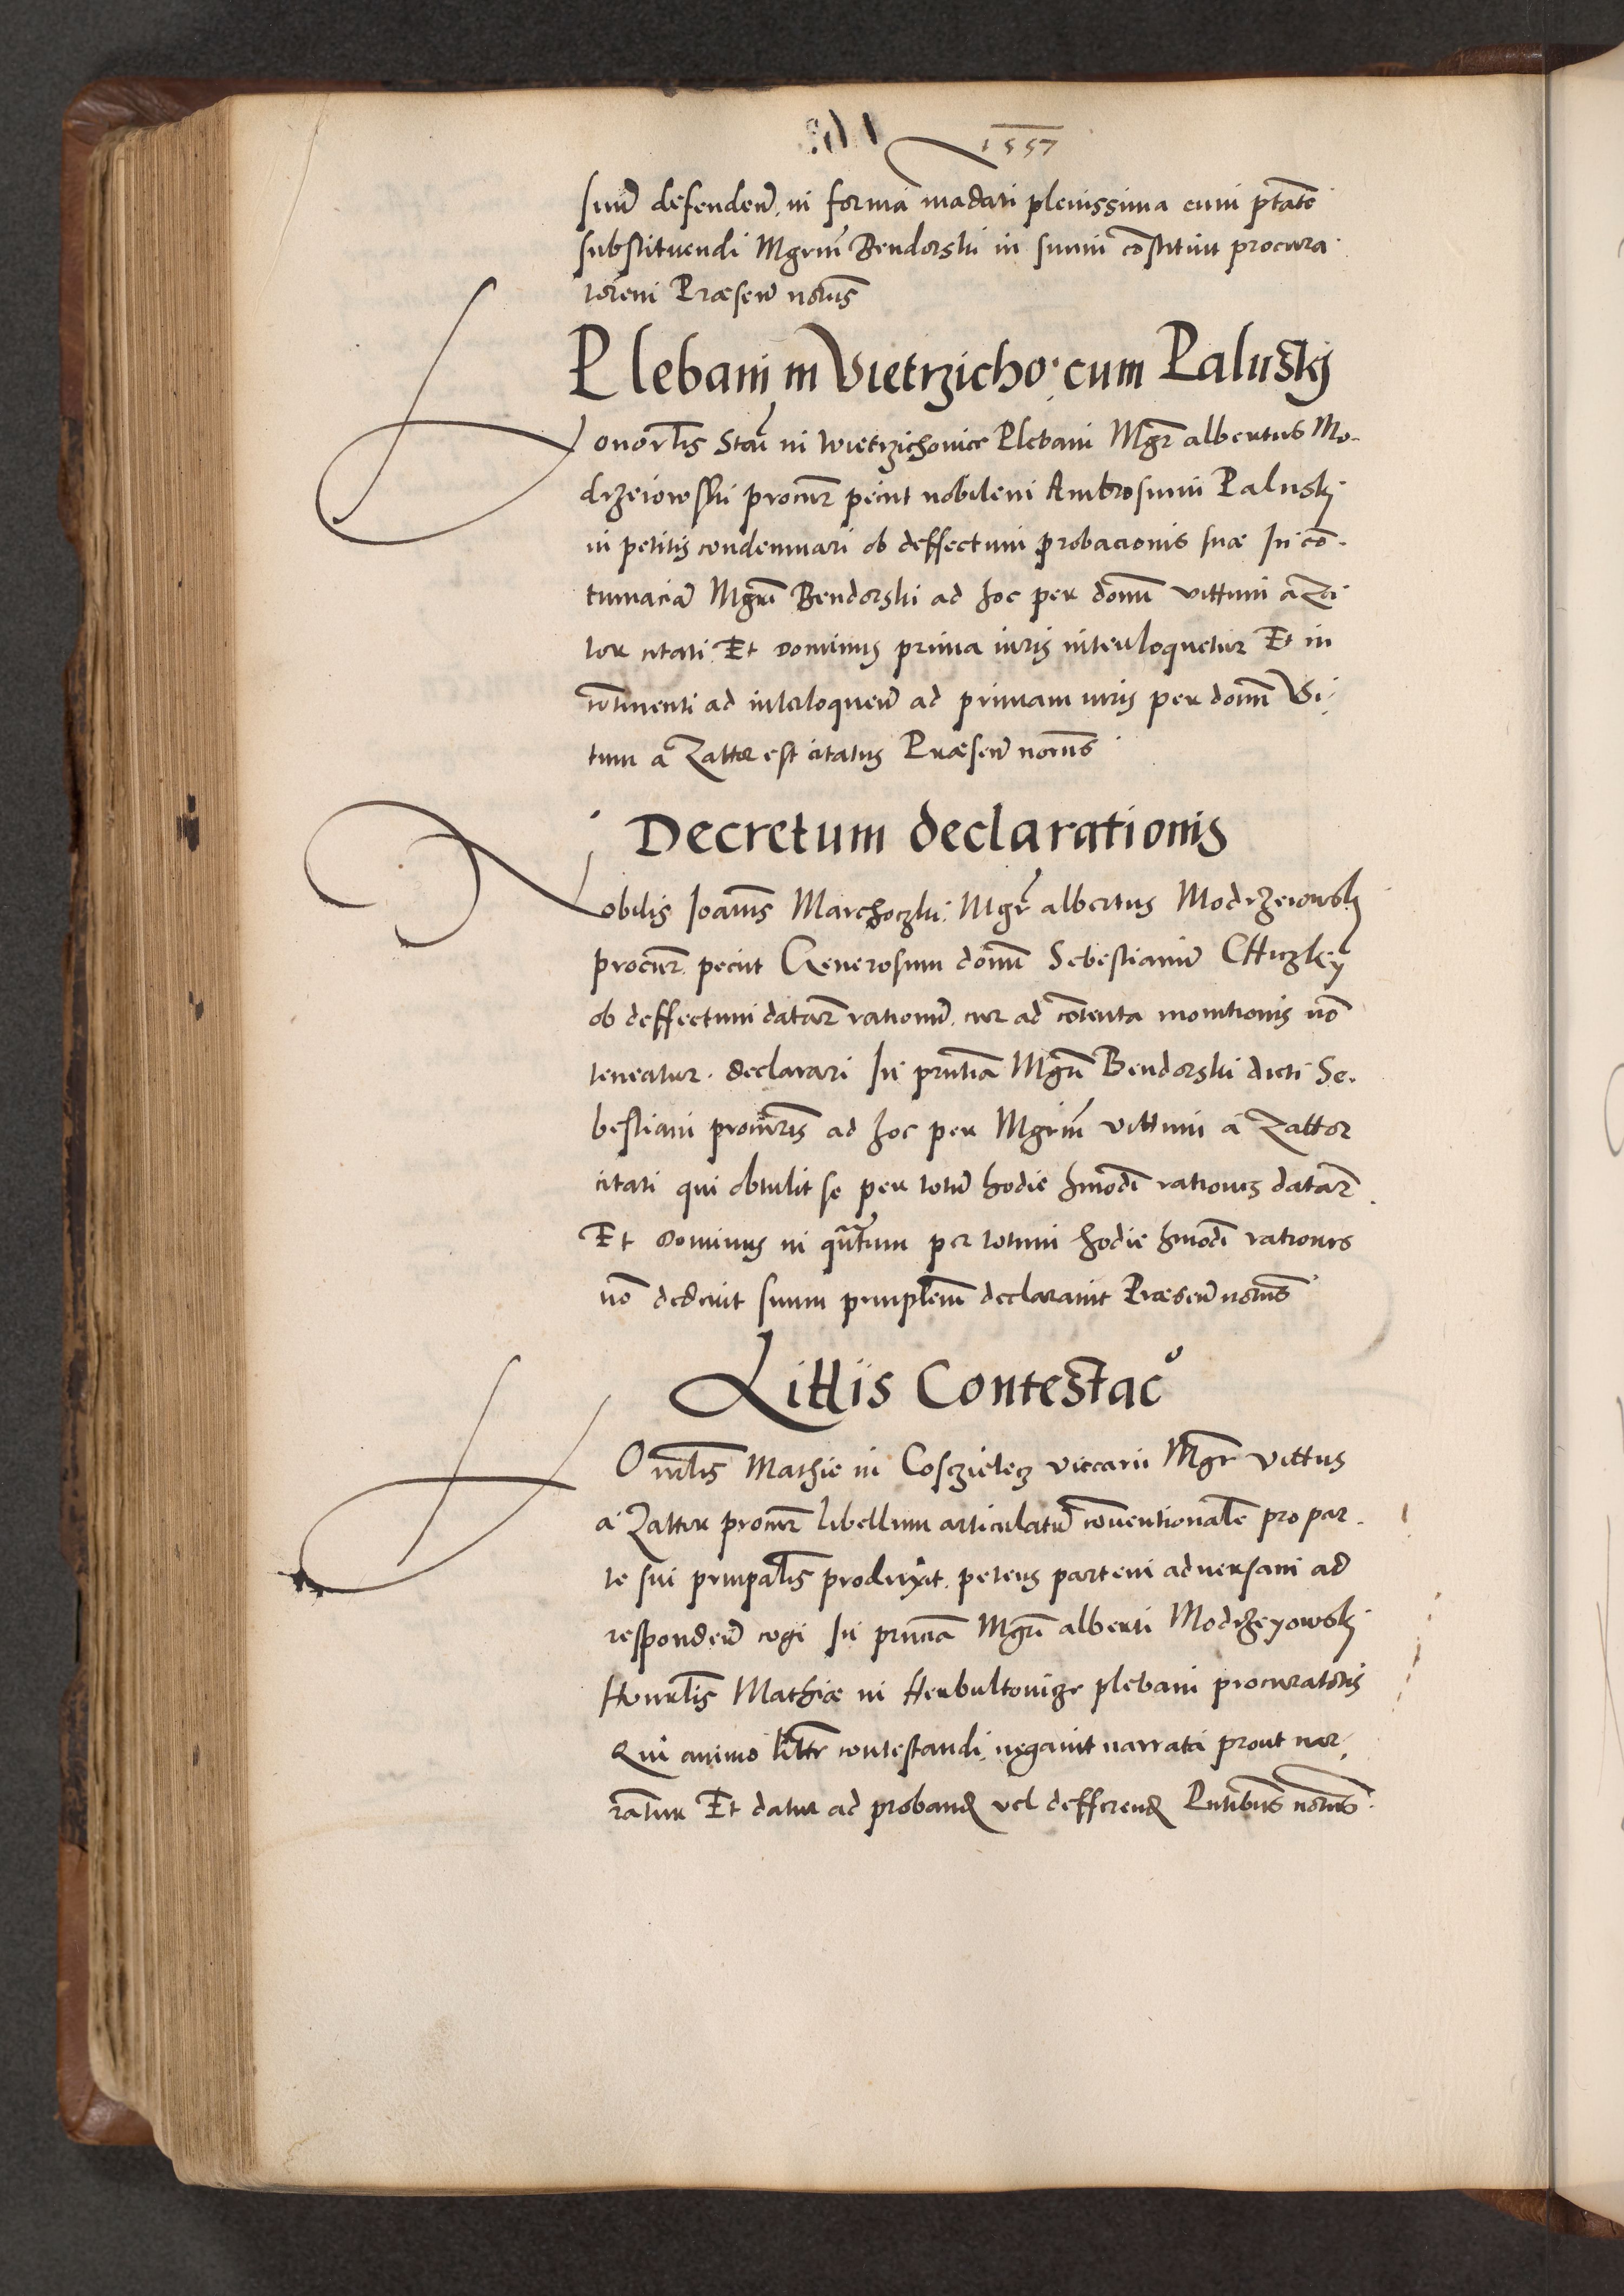 1557
suu̅ defendeu̅. in forma madati plenissima cum ptate
substituendi Mgrum Bendorski in suum costituit procura
torem Præsen̅ notus
Plebani in Vietrzicho: cum Paluskj
Honorlis Stai in Wietrzichovice Plebani Mgr albertus Mo-
drzeiowski procur̅ peciit nobilem Ambrosium Paluskj
in petitis condemnari ob deffectum probacionis suæ In co-
tumacia̅ Mgri Bendorski ad hoc per donu̅ vittum a Za
tor citati Et Dominus prima iuris interloquetur Et in
co̅tinenti ad interloquen̅ ad primam iuris per donu̅ Vi-
tum a Zattor est citatus Præsen̅ notus
Decretum declarationis
Nobilis Joanis Marchoczki Mgr albertus Modrzeiowskj
procur̅ peciit Generosum donu̅ Sebestianu̅
ob deffectum datar̅ rationu̅. cur ad co̅tenta monitionis no̅
teneatur. declarari In pn̅tia Mgri Bendorski dicti Se-
bestiani procuris ad hoc per Mgrum vittum a Zattor
citati qui obtulit se per totu̅ hodie hmodi rationes datar̅.
Et Dominus in qua̅tum per totum hodie hmodi rationes
no̅ dederit suum prinplem declaravit Præsen̅ notus
Littiis Contestac^o
HOnorlis Mathie in Cosczielecz viccarii Mgr vittus
a Zattor procur̅ libellum articulatu̅ co̅ventionale pro par-
te sui prinpalis produxit. petens partem adversam ad
responden̅ cogi In pn̅cia Mgri alberti Modrzeyowskj
Honorlis Mathiæ in Herbultovicze plebani procuratoris
Qui animo litte contestandi negavit narrata prout nar-
ra̅tur Et datur ad proband vel defferend Pn̅tibus notus.